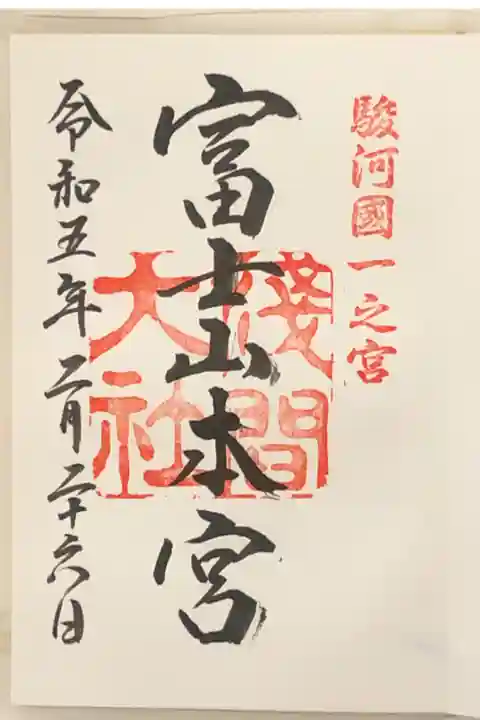 駿河國一之宮
富士山本宮
淺間大社
令和五年二月二十六日